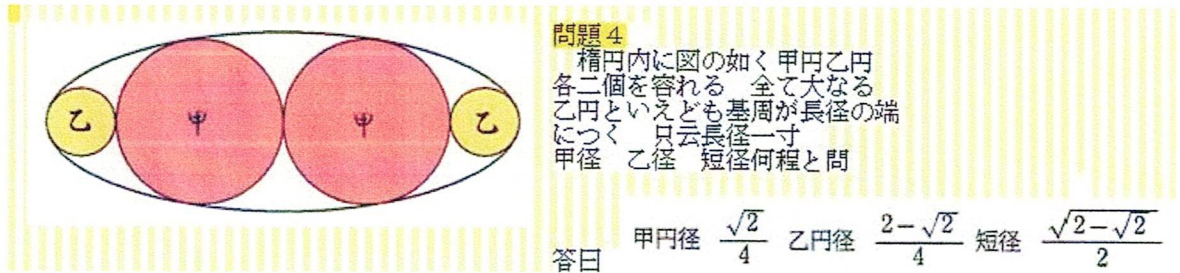 乙 甲 甲 乙
問題4
楕円内に図の如く甲円乙円
各二個を容れる 全て大なる
乙円といえども基周が長径の端
につく 只云長径一寸
甲径 乙径 短径何程と問
答曰 甲円径 √2/4 乙円径 (2-√2)/4 短径 √(2-√2)/2